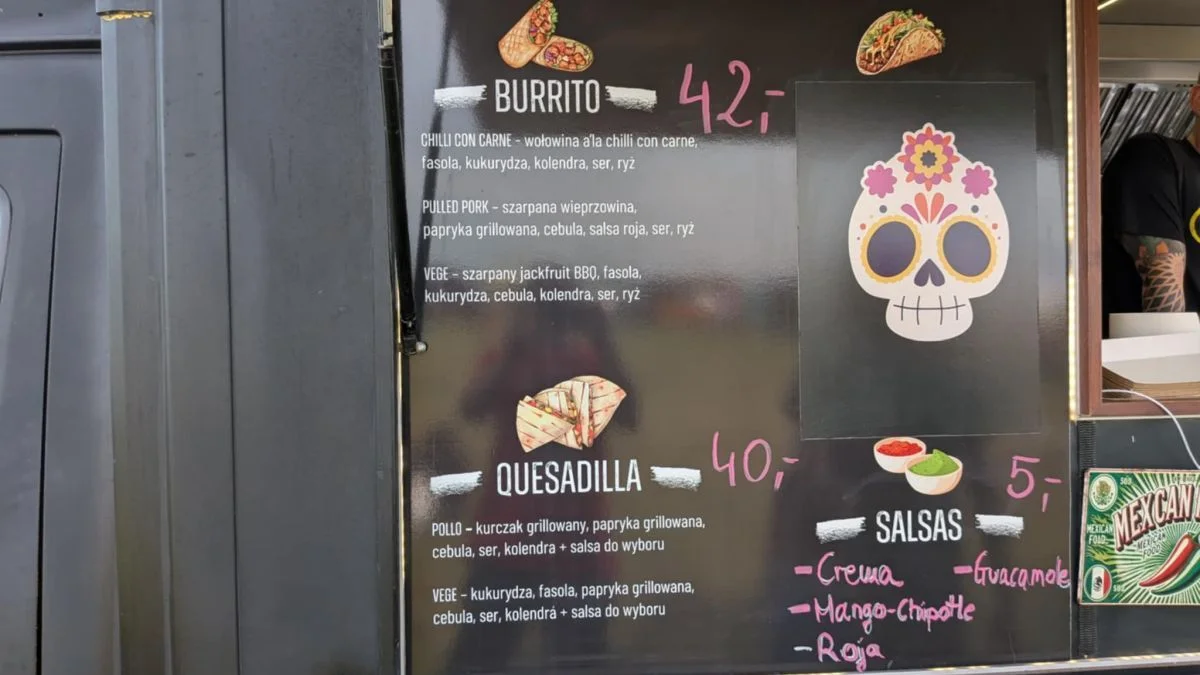 BURRITO 42,-
CHILLI CON CARNE - wołowina a'la chilli con carne,
fasola, kukurydza, kolendra, ser, ryż
PULLED PORK – szarpana wieprzowina,
papryka grillowana, cebula, salsa roja, ser, ryż
VEGE – szarpany jackfruit BBQ, fasola,
kukurydza, cebula, kolendra, ser, ryż
QUESADILLA 40,-
POLLO – kurczak grillowany, papryka grillowana,
cebula, ser, kolendra + salsa do wyboru
VEGE – kukurydza, fasola, papryka grillowana,
cebula, ser, kolendra + salsa do wyboru
SALSAS 5,-
- Crema
- Guacamole
- Mango-Chipotle
- Roja
MEXICAN
FOOD
MEXICAN
FOOD